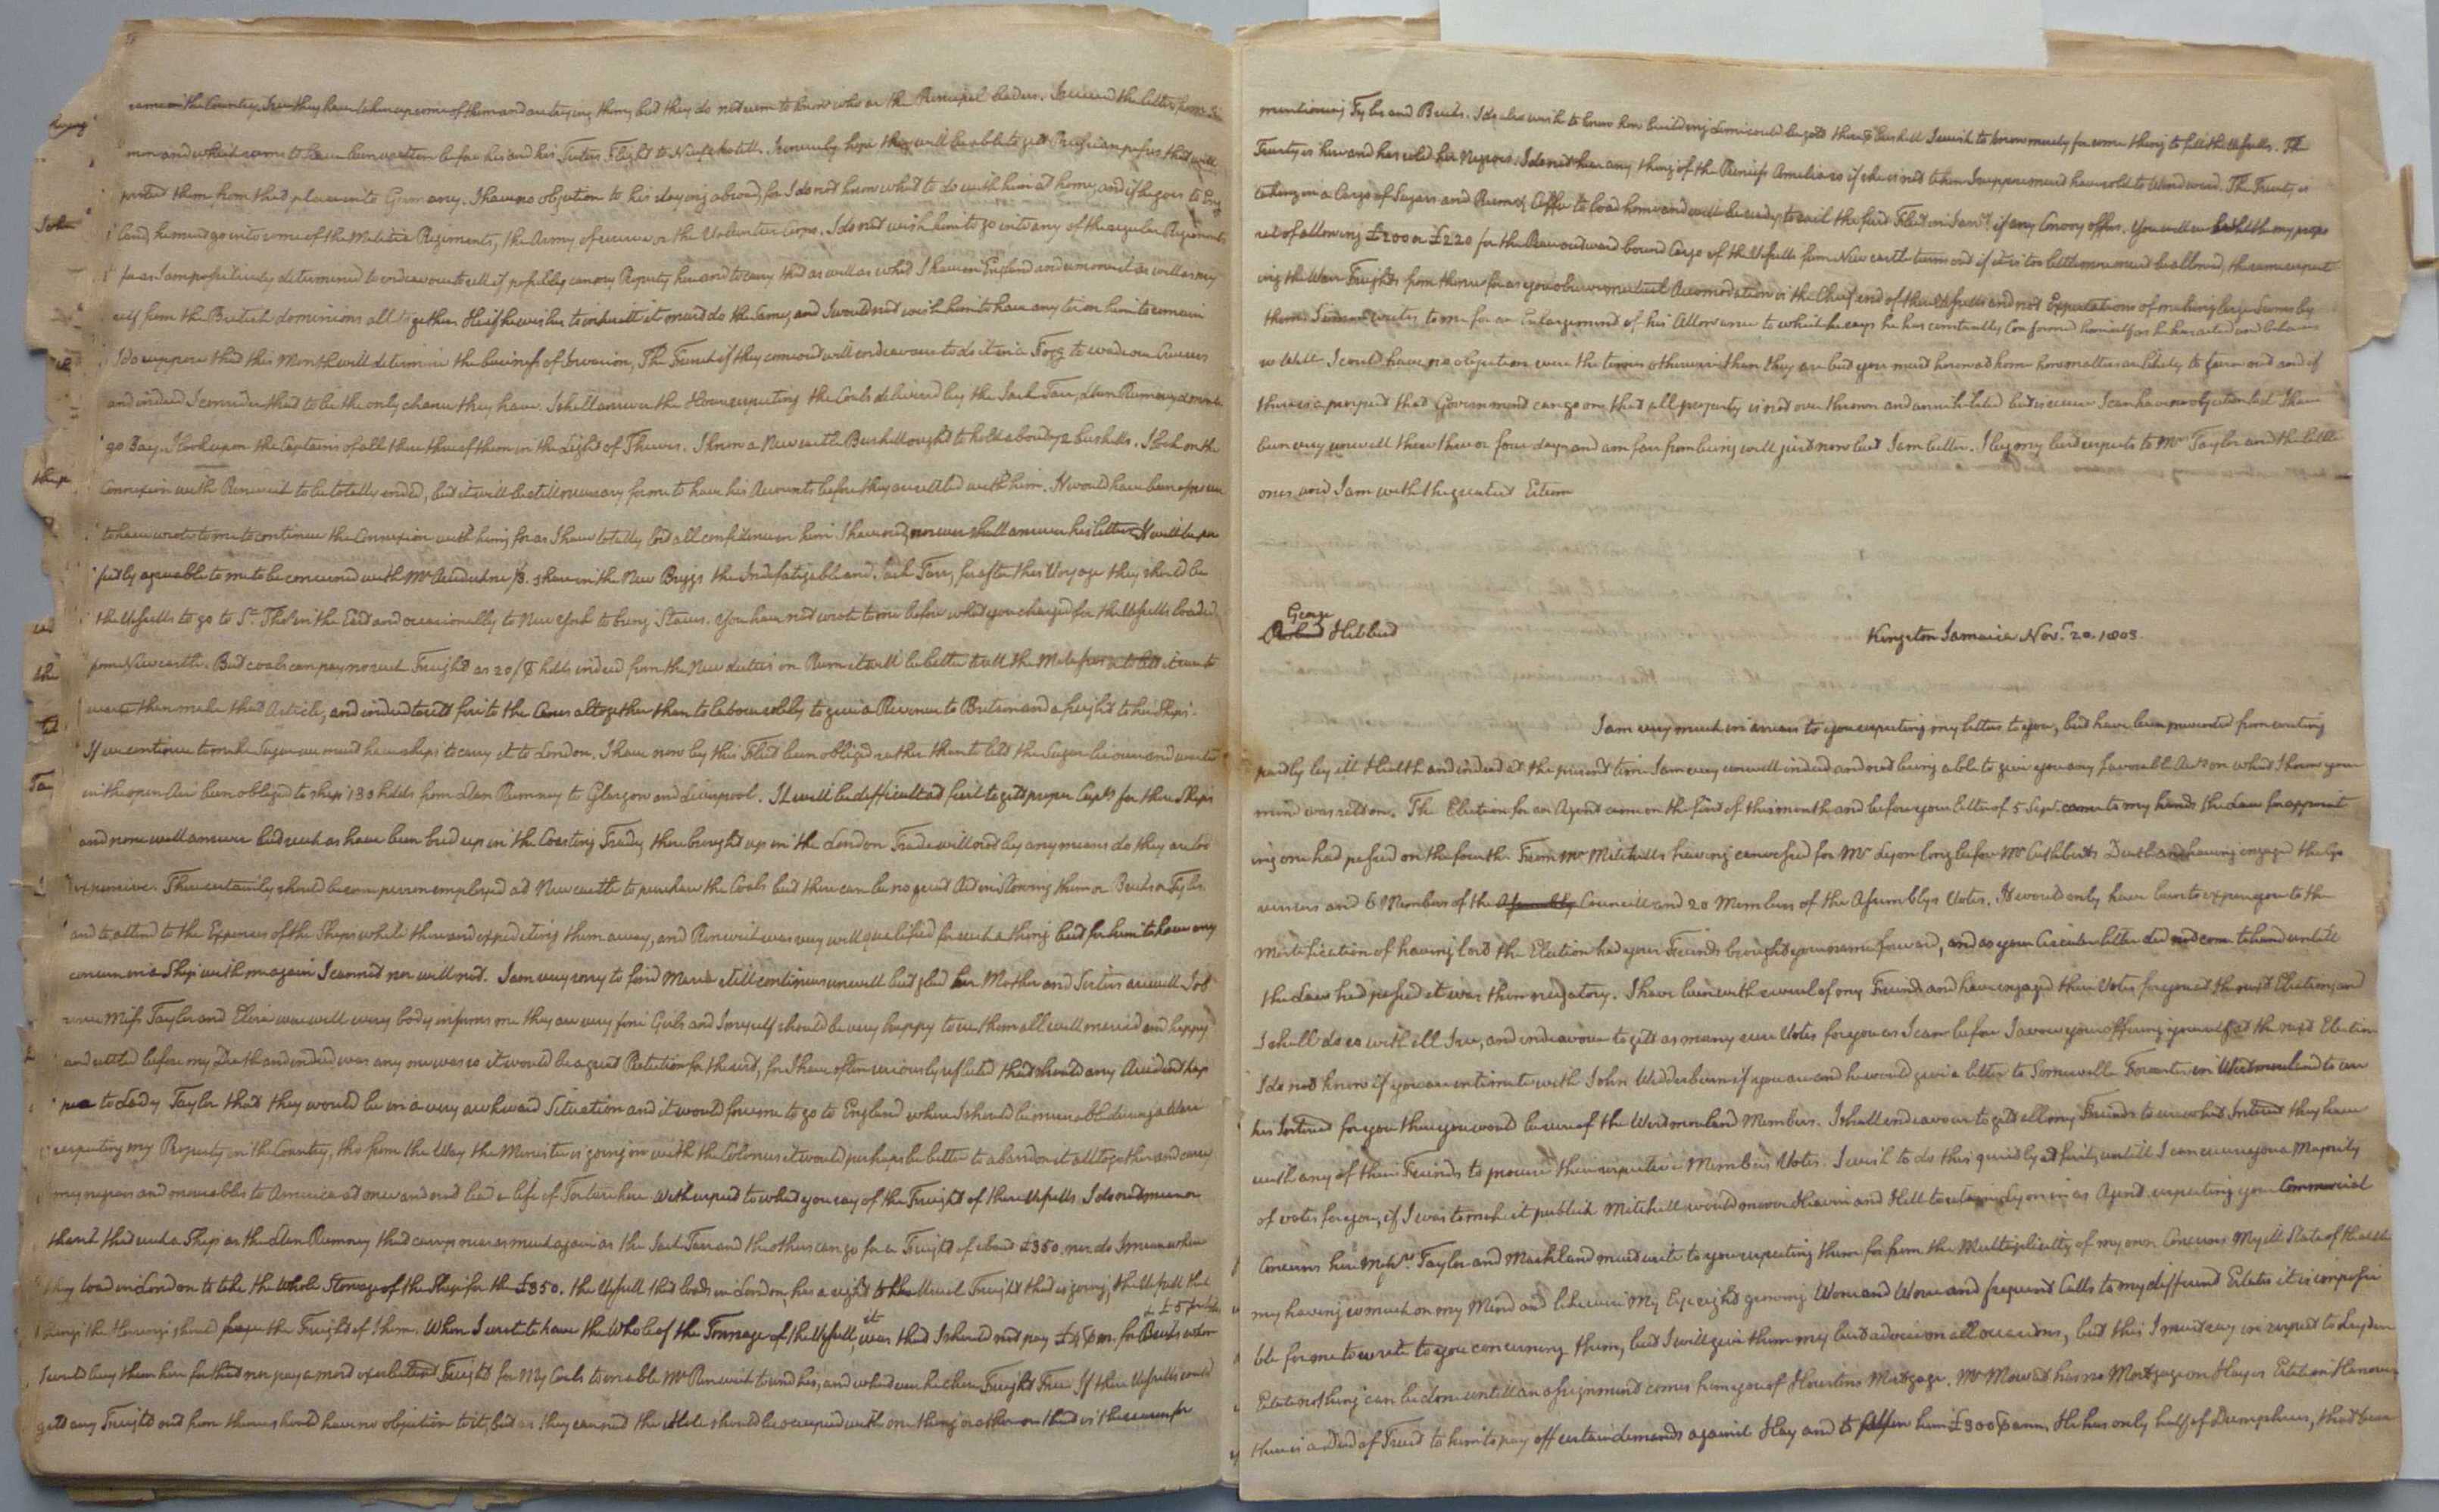 same in the Country, I see they have taken up some of them and are trying them, but they do not seem to know who are the Principal leaders. I received the letter from Si
mon and which seems to have been written before his and his Sisters Flight to Neufchatell. I sincerely hope they will be able to gett Prussian passes that will
protect them from that place into Germany. I have no objection to his staying abroad, for I do not know what to do with him at home, and if he goes to Eng
land, he must go into some of the Militia Regiments, the Army of reserve or the Volunteer Corps. I do not wish him to go into any of the regular Regiments
for as I am positively determined to endeavour to sell if possible my Property here and to carry that as well as what I have in England and remove it as well as my
self from the British dominions all together. He if he wishes to inheritt it must do the same, and I would not wish him to have any tie on him to remain
I do suppose that this Month will determine the business of Invasion, The French if they come over will endeavour to do it in a Fogg to evade our Cruisers
and indeed I consider that to be the only chance they have. I shall answer the House respecting the Coals delivered by the Jack Tarr, Llan Rumney
go Bay. I look upon the Captains of all three of them in the Light of Thieves. I know a New castle Bushell ought to hold bushells. I look on the
Connexion with Renwick to be totally ended, but it will be still necessary for me to have his Accounts before they are settled with him. It would have been of no use
to have wrote to me to continue the Connexion with him, for as I have totally lost all confidence in him I have not, nor ever shall answer his letter. It will be per
fectly agreeable to me to be concerned with Mr share in the New Briggs the Indefatigable and Jack Tarr, for after this Voyage they should be
the Vessells to go to St. Thos in the East and occasionally to New York to bring Staves. You have not wrote to me before what you charged for the Vessells loaded
from Newcastle. But coals can pay no such Freight as 20/ ⅌ hdd, indeed from the New duties on Rum it will be better to sell the Melasses
than make that Article, and indeed to sett fire to the Canes altogether than to labour solely to give a Revenue to Britain and a freight to her Ships.
If we continue to make Sugar we must have ships to carry it to London. I have now by this Fleet been obliged rather than to lett the Sugar lie over and waste
in the open Air been obliged to ship 130 hdds from Llan Rumney to Glasgow and Liverpool. It will be difficult at first to gett proper Capts for these Ships
and none will answer but such as have been bred up in the Coasting Trade, those brought up in the London Trade will not by any means do they are too
expensive. There certainly should be some person employed at New castle to purchase the Coals but there can be no great Art in Stowing them or Bricks or Tyles
and to attend to the Expences of the Ships while there and expediting them away, and Renwick was very well qualified for such a thing but for him to have any
concern in a Ship with me again I cannot nor will not. I am very sorry to find Maria still continues unwell but glad her Mother and Sisters are well. Job
Miss Taylor and Eliza were well every body informs me they are very fine Girls and I myself should be very happy to see them all well married and happy
and settled before my Death and indeed was any one was so it would be a great Protection for the rest, for I have often seriously reflected that should any Accident hap
pen to Lady Taylor that they would be in a very awkward Situation and it would force me to go to England where I should be miserable during a Warr
respecting my Property in the Country, tho from the Way the Minister is going on with the Colonies it would perhaps be better to abandon it alltogether and carry
my negroes and moveables to America at once and not lead a life of Torture here. With respect to what you say of the Freight of these Vessells I do not mean
that such a Ship as the Llan Rumney that carrys once as much again as the Jack Tarr and the others can go for a Freight of about £350. nor do I mean when
they load in London to take the whole Stowage of the Ship for the £350. the Vessell that loads in London, has a right to the Usual Freight that is going, the Vessell that
brings the Herrings should the Freight of them. When I want to have the Whole of the Tonnage of the Vessell, it was that I should not pay for Bricks when
I could buy them here for that nor pay a most exorbitant Freight for My Coals to enable Mr Renwick to send his, and what ever he chose Freight Free. If these Vessells could
gett any Freight out from thence I should have no objection to it, but as they can not the Hole should be occupied with one thing or other and that is the reason for
mentioning Tyles and Bricks. I do also wish to know how building Lime could be gott there ⅌ Bushell I wish to know merely for some thing to fill the Vessells. The
Trusty is here and has sold her Negroes. I do not hear any thing of the Princess Amelia so if she is not taken I suppose must have sold to Windward. The Trusty is
taking in a Cargo of Sugars and Rum & Coffee to load home and will be ready to sail the first Fleet in Janry if any Convoy offers. You will see by all the my propo
sal of allowing £200 or £220 for the Rum outward bound Cargo of the Vessells from New castle
ing the Warr Freights from thence for as you observe mutual Accomodation is the Chief end of the Vessells and not Expectations of making large Sums by
them. Simon writes to me for an Enlargement of his Allowance to which he says he has constantly Confirmed himself as he has acted and behaves
so Well. I could have no objection were the times otherwise than they are but you must know at home how matters are likely to turn out and if
there is a prospect that Government can go on, that all property is not over thrown and annihilated but is secure I can have no objection but I have
been very unwell these three or four days and am far from being well just now but I am better. I beg my best respects to Mrs Taylor and the little
ones and I am with the greatest Esteem
George
Hibbert
Kingston Jamaica Novr. 20. 1803.
I am very much in arrears to you respecting my letters to you, but have been prevented from writing
partly by ill Health and indeed at the present time I am very unwell indeed and not being able to give you any favorable Acts on what I know your
mind was sett on. The Election for an Agent came on the first of this month and before your letter of 5 Sept. came to my hands the Law for appoint
ing one had passed on the fourth. From Mr Mitchells having canvassed for Mr Lyon long before Mr Cuthberts Death and having engaged the Go
vernors and 6 Members of the Assembly Councill and 20 Members of the Assemblys Votes. It would only have been to expose you to the
Mortification of having lost the Election had your Friends brought your name forward, and as your Circular letter did not come to hand untill
the Law had passed it was then nugatory. I have been with several of my Friends and have engaged their Votes for you at the next Election, and
I shall do so with all I see, and endeavour to gett as many sure Votes for you as I can before I avow your offering yourself at the next Election
I do not know if you are intimate with John Wedderburn if you are and he would give a letter to Somerville Forrester in Westmorland to use
his Interest for you there you would be sure of the Westmorland Members. I shall endeavour to gett all my Friends to use what Interest they have
with any of their Friends to procure their respective Members Votes. I wish to do this quietly at first, untill I can secure you a Majority
of votes for you, if I was to make it publick Mitchell would move Heaven and Hell to retain Lyon in as Agent. respecting your Commercial
Concerns here Messrs. Taylor and Markland must write to you respecting them for from the Multiplicity of my own Concerns My ill State of Health
my having so much on my Mind and likewise My Eye sight growing Worse and Worse and frequent Calls to my different Estates it is impossi
ble for me to write to you concerning them, but I will give them my best advice on all occasions, but this I must say in respect to Leyden
Estate nothing can be done untill an assignment comes from you of Houstins Mortgage. Mr Mowat has no Mortgage on Hayes Estate in Hanover
there is a Deed of Trust to him to pay off certain demands against Hay and to him £300 ⅌ann, He has only half of Dumphries, that been